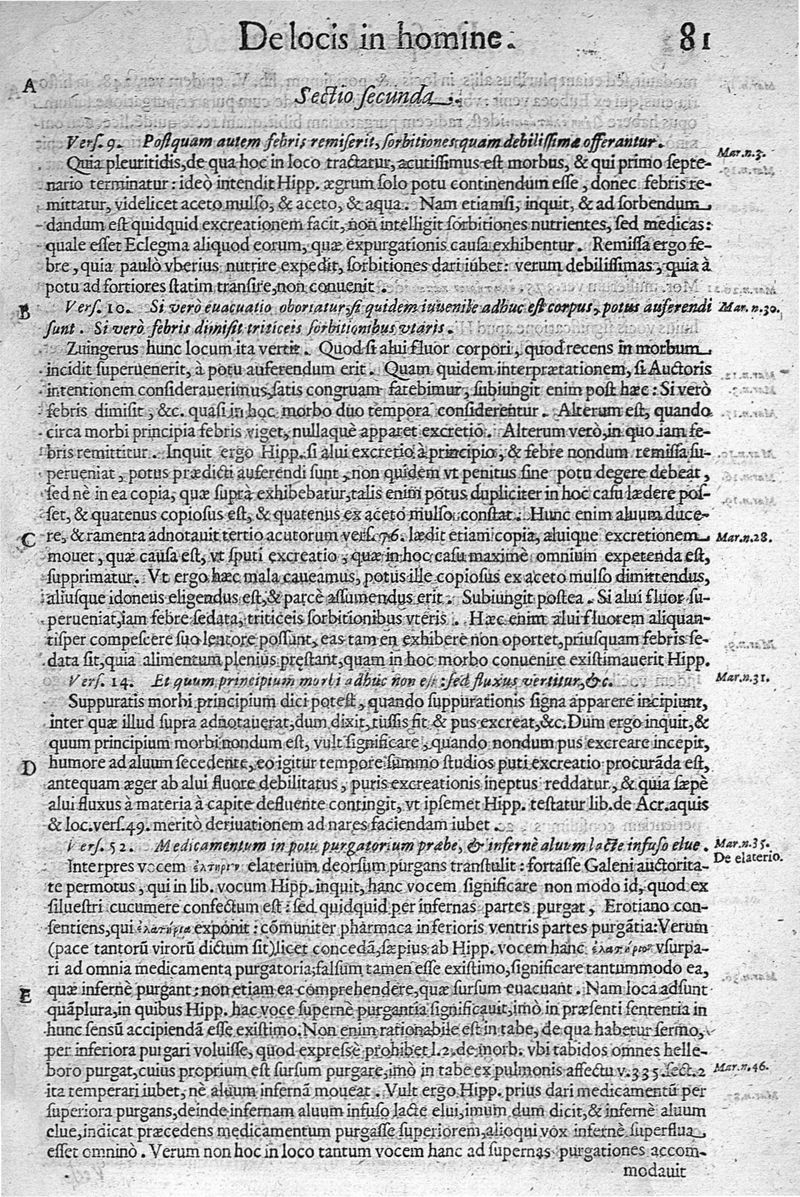 De locis in homine. 81
A
Sectio secunda.
Vers. 9. Postquam autem febris remiserit, sorbitiones quam debilissimæ offerantur.
Mar.n.3.
Quia pleuritidis, de qua hoc in loco tractatur, acutissimus est morbus, & qui primo septe-
nario terminatur: ideò intendit Hipp. ægrum solo potu continendum esse, donec febris re-
mittatur, videlicet aceto mulso, & aceto, & aqua. Nam etiamsi, inquit, & ad sorbendum
dandum est quidquid excreationem facit, non intelligit sorbitiones nutrientes, sed medicas:
quale esset Eclegma aliquod eorum, quæ expurgationis causa exhibentur. Remissa ergo fe-
bre, quia paulò vberius nutrire expedit, sorbitiones dari iubet: verum debilissimas, quia à
potu ad fortiores statim transire, non conuenit.
B
Vers. 10. Si verò euacuatio obortatur, si quidem iuuenile adhuc est corpus, potus auferendi
Mar.n.30.
sunt. Si verò febris dimisit triticeis sorbitionibus vtaris.
Zuingerus hunc locum ita vertit. Quod si alui fluor corpori, quod recens in morbum
incidit superuenerit, à potu auferendum erit. Quam quidem interprætationem, si Auctoris
intentionem considerauerimus, satis congruam fatebimur, subiungit enim post hæc: Si verò
febris dimisit, &c. quasi in hoc morbo duo tempora considerentur. Alterum est, quando
circa morbi principia febris viget, nullaquè apparet excretio. Alterum verò, in quo iam fe-
bris remittitur. Inquit ergo Hipp. si alui excretio à principio, & febre nondum remissa su-
perueniat, potus prædicti auferendi sunt, non quidem vt penitus sine potu degere debeat,
sed nè in ea copia, quæ suprà exhibebatur, talis enim potus dupliciter in hoc casu lædere pos-
set, & quatenus copiosus est, & quatenus ex aceto mulso constat. Hunc enim aluum duce-
C
re, & ramenta adnotauit tertio acutorum vers. 76. lædit etiam copia, aluique excretionem
Mar.n.28.
mouet, quæ causa est, vt sputi excreatio, quæ in hoc casu maximè omnium expetenda est,
supprimatur. Vt ergo hæc mala caueamus, potus ille copiosus ex aceto mulso dimittendus,
aliusque idoneus eligendus est, & parcè assumendus erit. Subiungit postea. Si alui fluor su-
perueniat, iam febre sedata, triticeis sorbitionibus vteris. Hæc enim alui fluorem aliquan-
tisper compescere suo lentore possunt, eas tamen exhibere non oportet, priusquam febris se-
data sit, quia alimentum plenius præstant, quam in hoc morbo conuenire existimauerit Hipp.
Vers. 14. Et quum principium morbi adhuc non est: sed fluxus vertitur, &c.
Mar.n.31.
Suppuratis morbi principium dici potest, quando suppurationis signa apparere incipiunt,
inter quæ illud supra adnotauerat, dum dixit, tussis fit & pus excreat, &c. Dum ergo inquit, &
quum principium morbi nondum est, vult significare, quando nondum pus excreare incepit,
D
humore ad aluum secedente, eo igitur tempore summo studio sputi excreatio procurãda est,
antequam æger ab alui fluore debilitatus, puris excreationis ineptus reddatur, & quia sæpè
alui fluxus à materia à capite defluente contingit, vt ipsemet Hipp. testatur lib. de Aer. aquis
& loc. vers. 49. meritò deriuationem ad nares faciendam iubet.
Vers. 52. Medicamentum in potu purgatorium præbe, & infernè aluum lacte infuso elue.
Mar.n.35.
De elaterio.
Interpres vocem ἐλατήριον elaterium deorsum purgans transtulit: fortasse Galeni auctorita-
te permotus, qui in lib. vocum Hipp. inquit, hanc vocem significare non modo id, quod ex
siluestri cucumere confectum est: sed quidquid per infernas partes purgat, Erotiano con-
sentiens, qui ἐλατήρια exponit: cõmuniter phàrmaca inferioris ventris partes purgãtia: Verum
(pace tantorũ virorũ dictum sit) licet concedã, sæpius ab Hipp. vocem hanc ἐλατήριον vsurpa-
ri ad omnia medicamenta purgatoria; falsum tamen esse existimo, significare tantummodo ea,
E
quæ infernè purgant: non etiam ea comprehendere, quæ sursum euacuant. Nam loca adsunt
quãplura, in quibus Hipp. hac voce supernè purgantia significauit, imò in præsenti sententia in
hunc sensũ accipiendã esse existimo. Non enim rationabile est in tabe, de qua habetur sermo,
per inferiora purgari voluisse, quod expressè prohibet l. 2. de morb. vbi tabidos omnes helle-
boro purgat, cuius proprium est sursum purgare, imò in tabe ex pulmonis affectu v. 335. sect. 2
Mar.n.46.
ita temperari iubet, nè aluum infernã moueat. Vult ergo Hipp. prius dari medicamentũ per
superiora purgans, deinde infernam aluum infuso lacte elui, imum dum dicit, & infernè aluum
elue, indicat præcedens medicamentum purgasse superiorem, alioqui vox infernè superflua
esset omninò. Verum non hoc in loco tantum vocem hanc ad supernas purgationes accom-
modauit